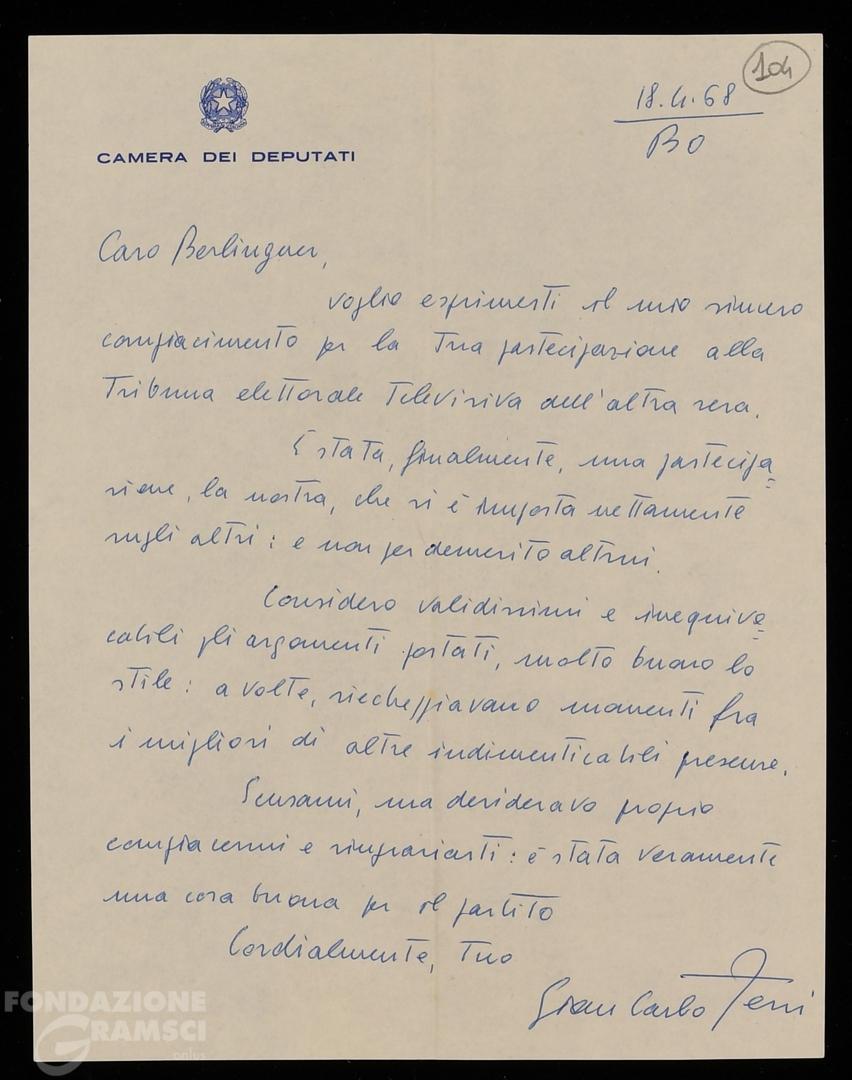 104
18.4.68
BO
CAMERA DEI DEPUTATI
Caro Berlinguer,
voglio esprimerti il mio sincero
compiacimento per la Tua partecipazione alla
Tribuna elettorale Televisiva dell'altra sera.
È stata, finalmente, una partecipa=
zione, la nostra, che si è imposta nettamente
sugli altri: e non per demerito altrui.
Considero validissimi e inequivo=
cabili gli argomenti portati, molto buono lo
stile: a volte, riecheggiavano momenti fra
i migliori di altre indimenticabili presenze.
Scusami, ma desideravo proprio
compiacermi e ringraziarti: è stata veramente
una cosa buona per il partito
Cordialmente, Tuo
Gian Carlo Ferri
FONDAZIONE
GRAMSCI
onlus